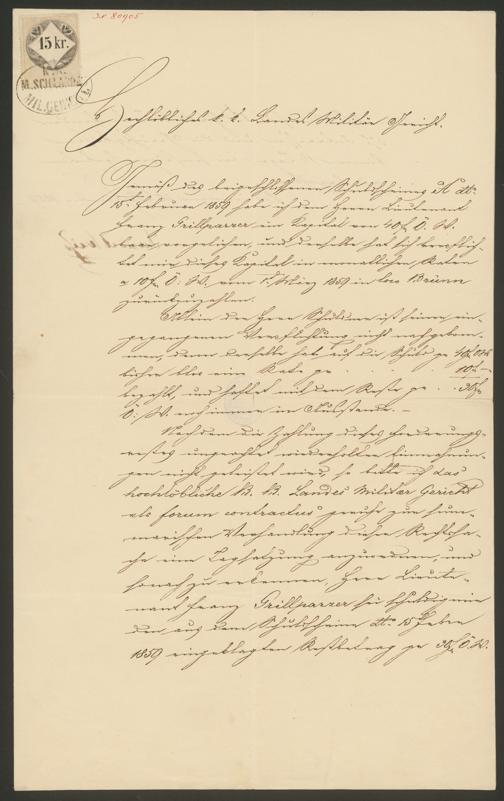 Nr 80905
15 kr.
M. SCHLESI
MIL. GERI
Hochlöbliches k. k. Landes Militär Gericht.
Gemäß des beigeschlossenen Schuldscheines A dto
15. Februar 1859 habe ich dem Herrn Lieutenant
Franz Grillparzer ein Kapital von 40 f Ö. W.
baar vorgeliehen, und derselbe hat sich verpflich-
tet mir dieses Kapital in monatlichen Raten
a 10 f Ö: W. vom 1t März 1859 in loco Brünn
zurückzuzahlen.
Allein der Herr Schuldner ist seiner ein-
gegangenen Verpflichtung nicht nachgekom-
men, denn derselbe hat auf die Schuld pr 40f
bisher blos eine Rate pr . . . 10f –
bezahlt, und haftet mit dem Reste pr . . 30f
Ö: W. noch immer im Ausstande. –
Nachdem die Zahlung dieses Forderungs-
restes ungeachtet wiederholter Einmahnun-
gen nicht geleistet wird, so bitte ich das
hochlöbliche k. k. Landes Militär Gericht
als forum contractus geruhe zur sum-
marischen Verhandlung dieser Rechtssa-
che eine Tagsatzung anzuordnen, und
sonach zu erkennen, Herr Lieute-
nant Franz Grillparzer sei schuldig mir
den aus dem Schuldscheine dto 15 Feber
1859 eingeklagten Restbetrag pr 30f Ö. W.